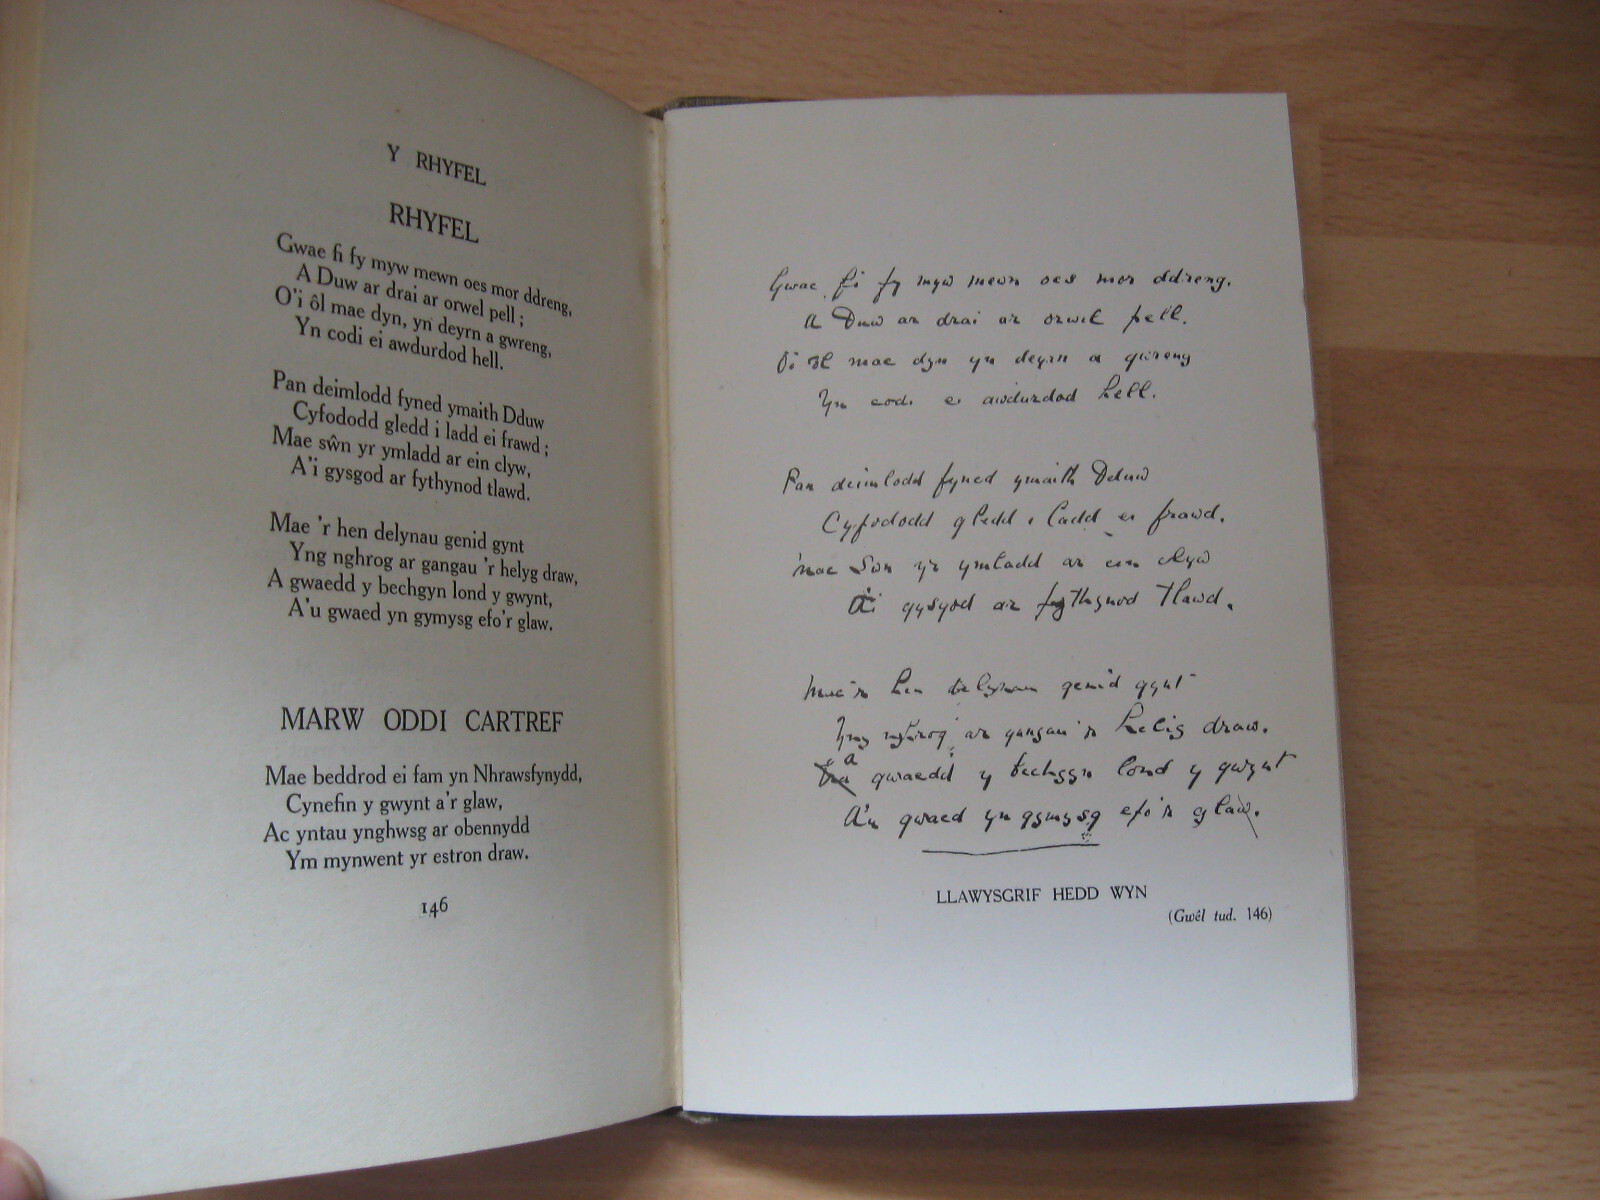 Y RHYFEL
RHYFEL
Gwae fi fy myw mewn oes mor ddreng,
A Duw ar drai ar orwel pell ;
O'i ôl mae dyn, yn deyrn a gwreng,
Yn codi ei awdurdod hell.
Pan deimlodd fyned ymaith Dduw
Cyfododd gledd i ladd ei frawd ;
Mae sŵn yr ymladd ar ein clyw,
A'i gysgod ar fythynod tlawd.
Mae 'r hen delynau genid gynt
Yng nghrog ar gangau 'r helyg draw,
A gwaedd y bechgyn lond y gwynt,
A'u gwaed yn gymysg efo'r glaw.
MARW ODDI CARTREF
Mae beddrod ei fam yn Nhrawsfynydd,
Cynefin y gwynt a'r glaw,
Ac yntau ynghwsg ar obennydd
Ym mynwent yr estron draw.
146
Gwae fi fy myw mewn oes mor ddreng.
A Duw ar drai ar orwel pell.
O'i ôl mae dyn yn deyrn a gwreng
Yn codi ei awdurdod hell.
Pan deimlodd fyned ymaith Dduw
Cyfododd gledd i ladd ei frawd.
Mae Swn yr ymladd ar ein clyw
A'i gysgod ar fythynod Tlawd.
Mae'r hen delynau genid gynt
Yng nghrog ar gangau'r helig draw.
A gwaedd y bechgyn lond y gwynt
A'u gwaed yn gymysg efo'r glaw.
LLAWYSGRIF HEDD WYN
(Gwêl tud. 146)